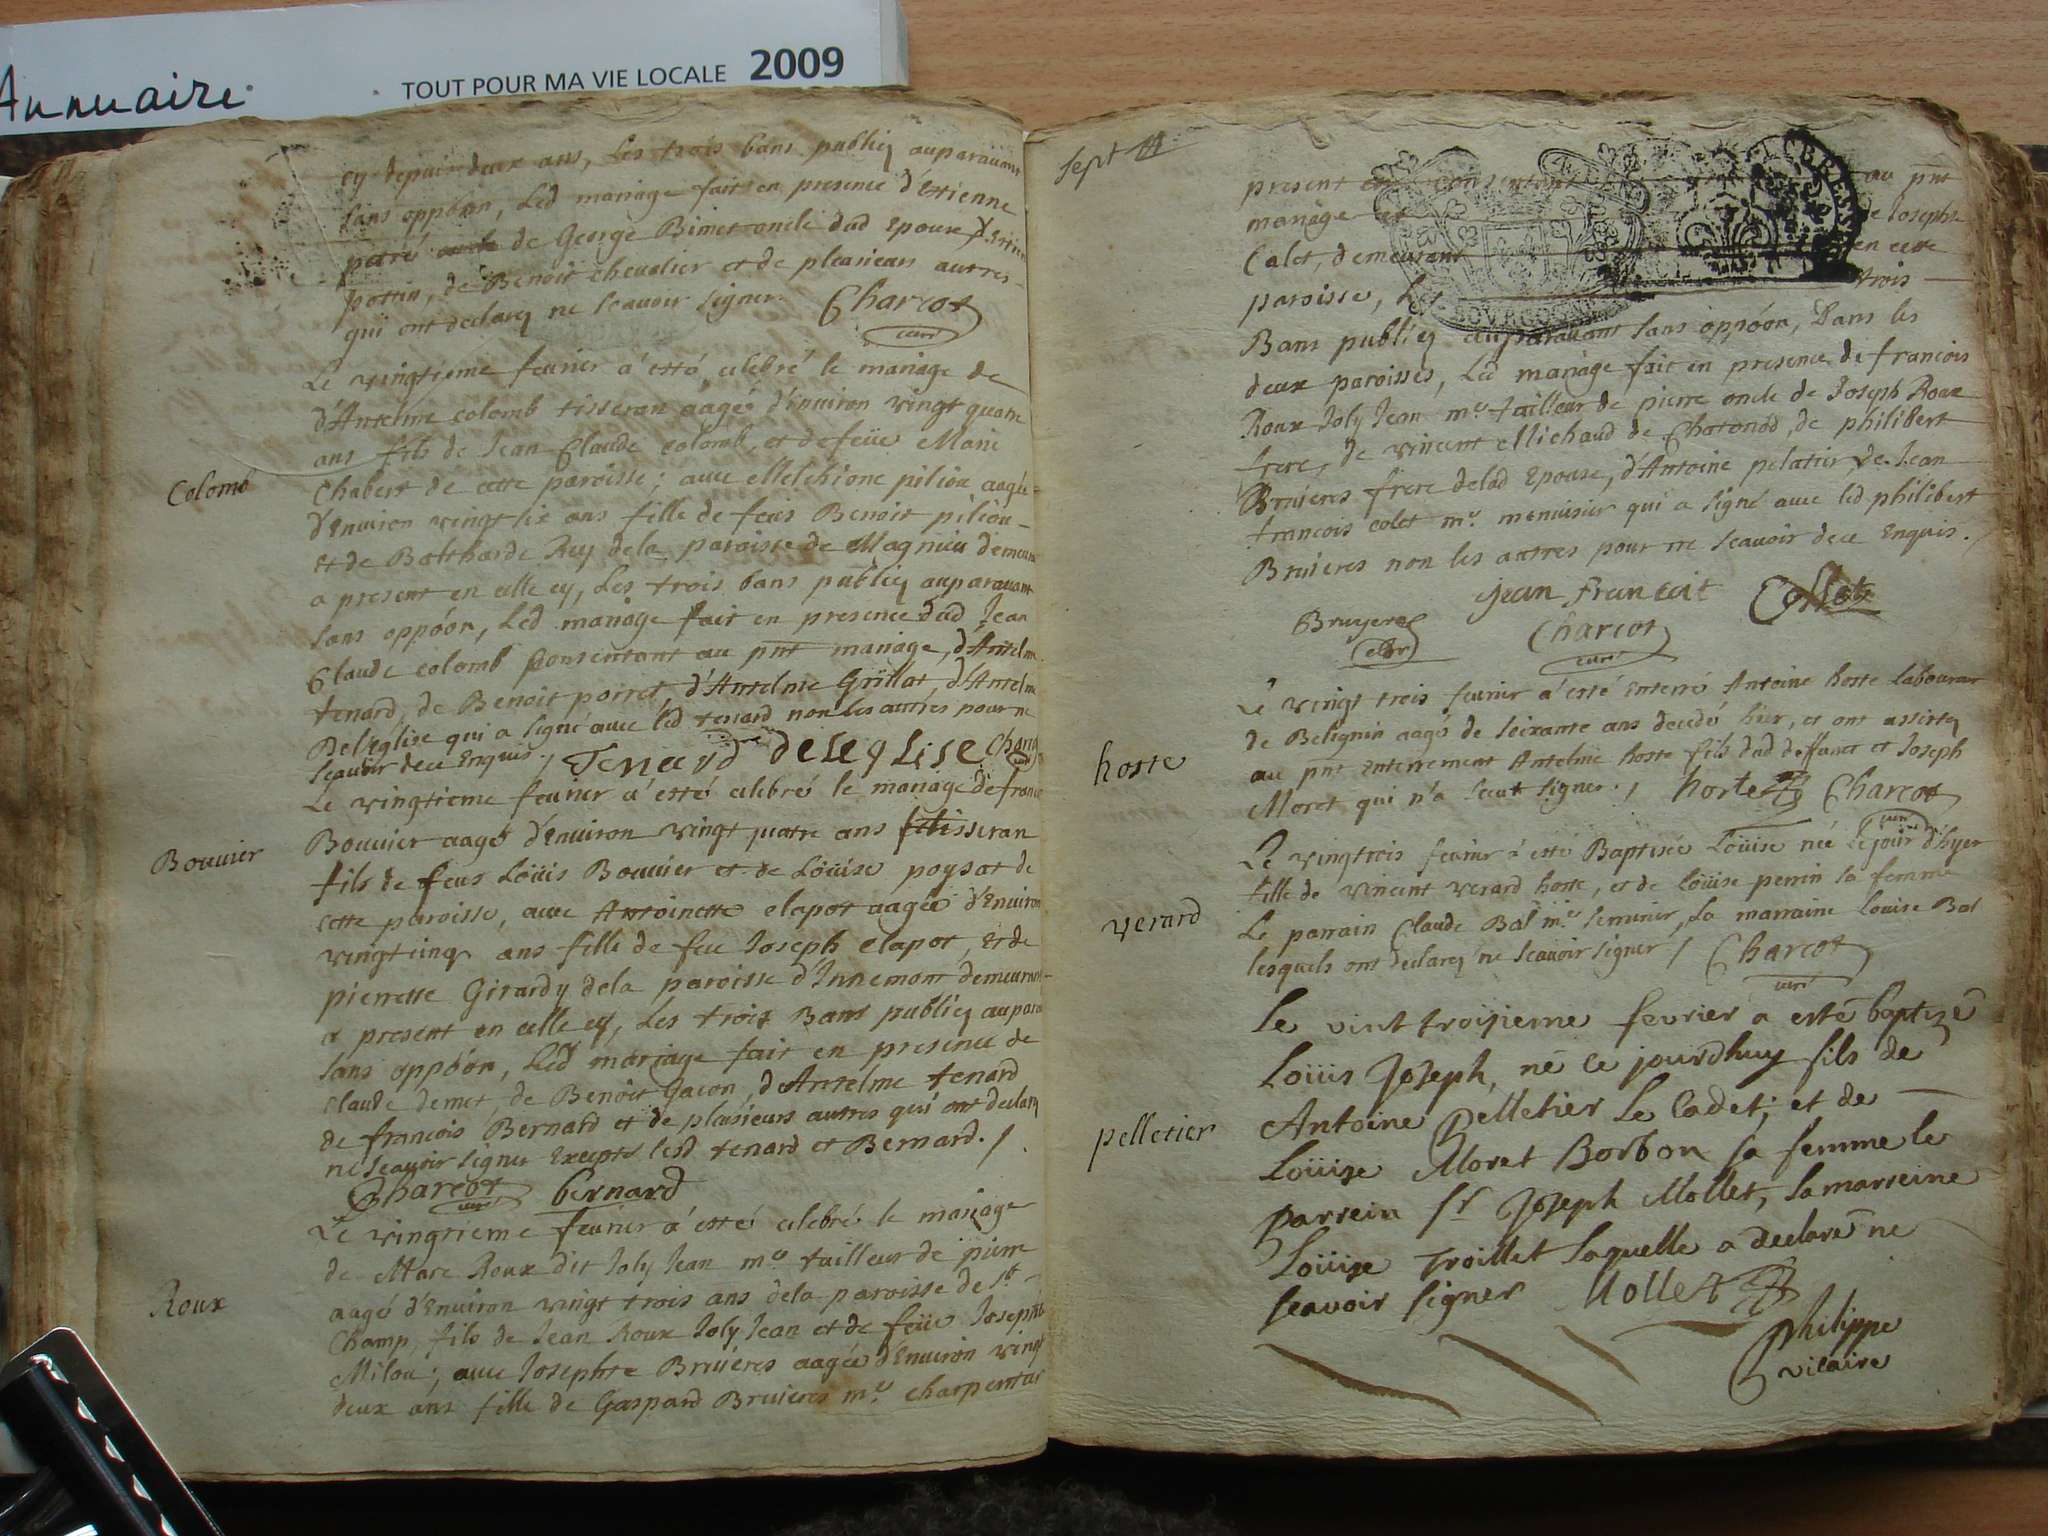 Annuaire
TOUT POUR MA VIE LOCALE 2009
cy depuis deux ans, les trois bans publiez auparavant
sans oppóon, Led mariage fait en presence d'Estienne
petré de George Bimet oncle dud Epoux
pottin, de Benoit chevalier et de plusieurs autres
qui ont declarez ne scavoir signer. Charcot
curé
Colomb
Le vingtieme fevrier a esté celebré le mariage de
d'Antelme colomb tisseran aagé d'Environ vingt quatre
ans fils de Jean Claude colomb, et de feüe Marie
Chabert de cette paroisse; avec Melchione piliou aagée
d'Environ vingt six ans fille de feus Benoit piliou
et de Balthazarde Rey dela paroisse de Magnieu demeurant
a present en celle cy, Les trois bans publiez auparavant
sans oppóon, Led mariage fait en presence dud Jean
Claude colomb consentant au pnt mariage, d'Antelme
tenard, de Benoit porret, d'Antelme Grillat, d'Antelme
Deléglise qui a signé avec led tenard non les autres pour ne
scavoir dece Enquis. / Tenard deleglise Charcot
Bouvier
Le vingtieme fevrier a esté celebré le mariage de francois
Bouvier aagé d'Environ vingt quatre ans tisseran
fils de feus Loüis Bouvier et de Loüise poysat de
cette paroisse, avec Antoinette clapot aagée d'Environ
vingt cinq ans fille de feu Joseph clapot, et de
pierrette Girardy dela paroisse d'Innemont demeurant
a present en celle cy, Les trois Bans publiez aupara
sans oppóon, Led mariage fait en presence de
claude demet, de Benoit Gacon, d'Antelme tenard
de francois Bernard et de plusieurs autres qui ont declarez
ne scavoir signer Excepté lesd tenard et Bernard. /
Charcot curé bernard
Roux
Le vingtieme fevrier a esté celebré le mariage
de Marc Roux dit Joly Jean me tailleur de pierre
aagé d'Environ vingt trois ans dela paroisse de St
Champ, fils de Jean Roux Joly Jean et de feüe Josephte
Milou; avec Josephte Bruieres aagée d'Environ vingt
deux ans fille de Gaspard Bruieres me charpentier
sept
present et consentant au pnt
mariage et de Josephte
Calet, demeurant en cette
paroisse, Les trois
BOURGOGNE
Bans publiez auparavant sans oppóon, Dans les
deux paroisses, Led mariage fait en presence de francois
Roux Joly Jean me tailleur de pierre oncle de Joseph Roux
frere, de vincent Michaud de Chatonod, de philibert
Bruieres frere delad Epouse, d'Antoine pelatier de Jean
francois colet me menuisier qui a signé avec led philibert
Bruieres non les autres pour ne scavoir dece Enquis. /
jean francoit Collet
Bruyere Charcot
curé
hoste
Le vingt trois fevrier a esté Enterré Antoine hoste laboureur
de Belignin aagé de soixante ans decedé hier, et ont assistez
au pnt Enterrement Antelme hoste fils dud deffunct et Joseph
Moret qui n'a sceut signer. / horte Charcot
curé
verard
Le vingtrois fevrier a esté Baptisée Loüise née le jour d'hyer
fille de vincent verard hoste, et de Loüise perrin sa femme
Le parrain Claude Bal me serrurier, La marraine Louise Bal
lesquels ont declarez ne scavoir signer / Charcot
curé
pelletier
Le vint troisieme fevrier a esté baptizé
Loüis Joseph, né ce jourdhuy fils de
Antoine Pelletier Le Cadet; et de
Loüize Moret Borbon sa femme le
parrein Sr Joseph Mollet, la marreine
Loüize Troillet laquelle a declaré ne
scavoir signer Mollet
Philippe
vicaire